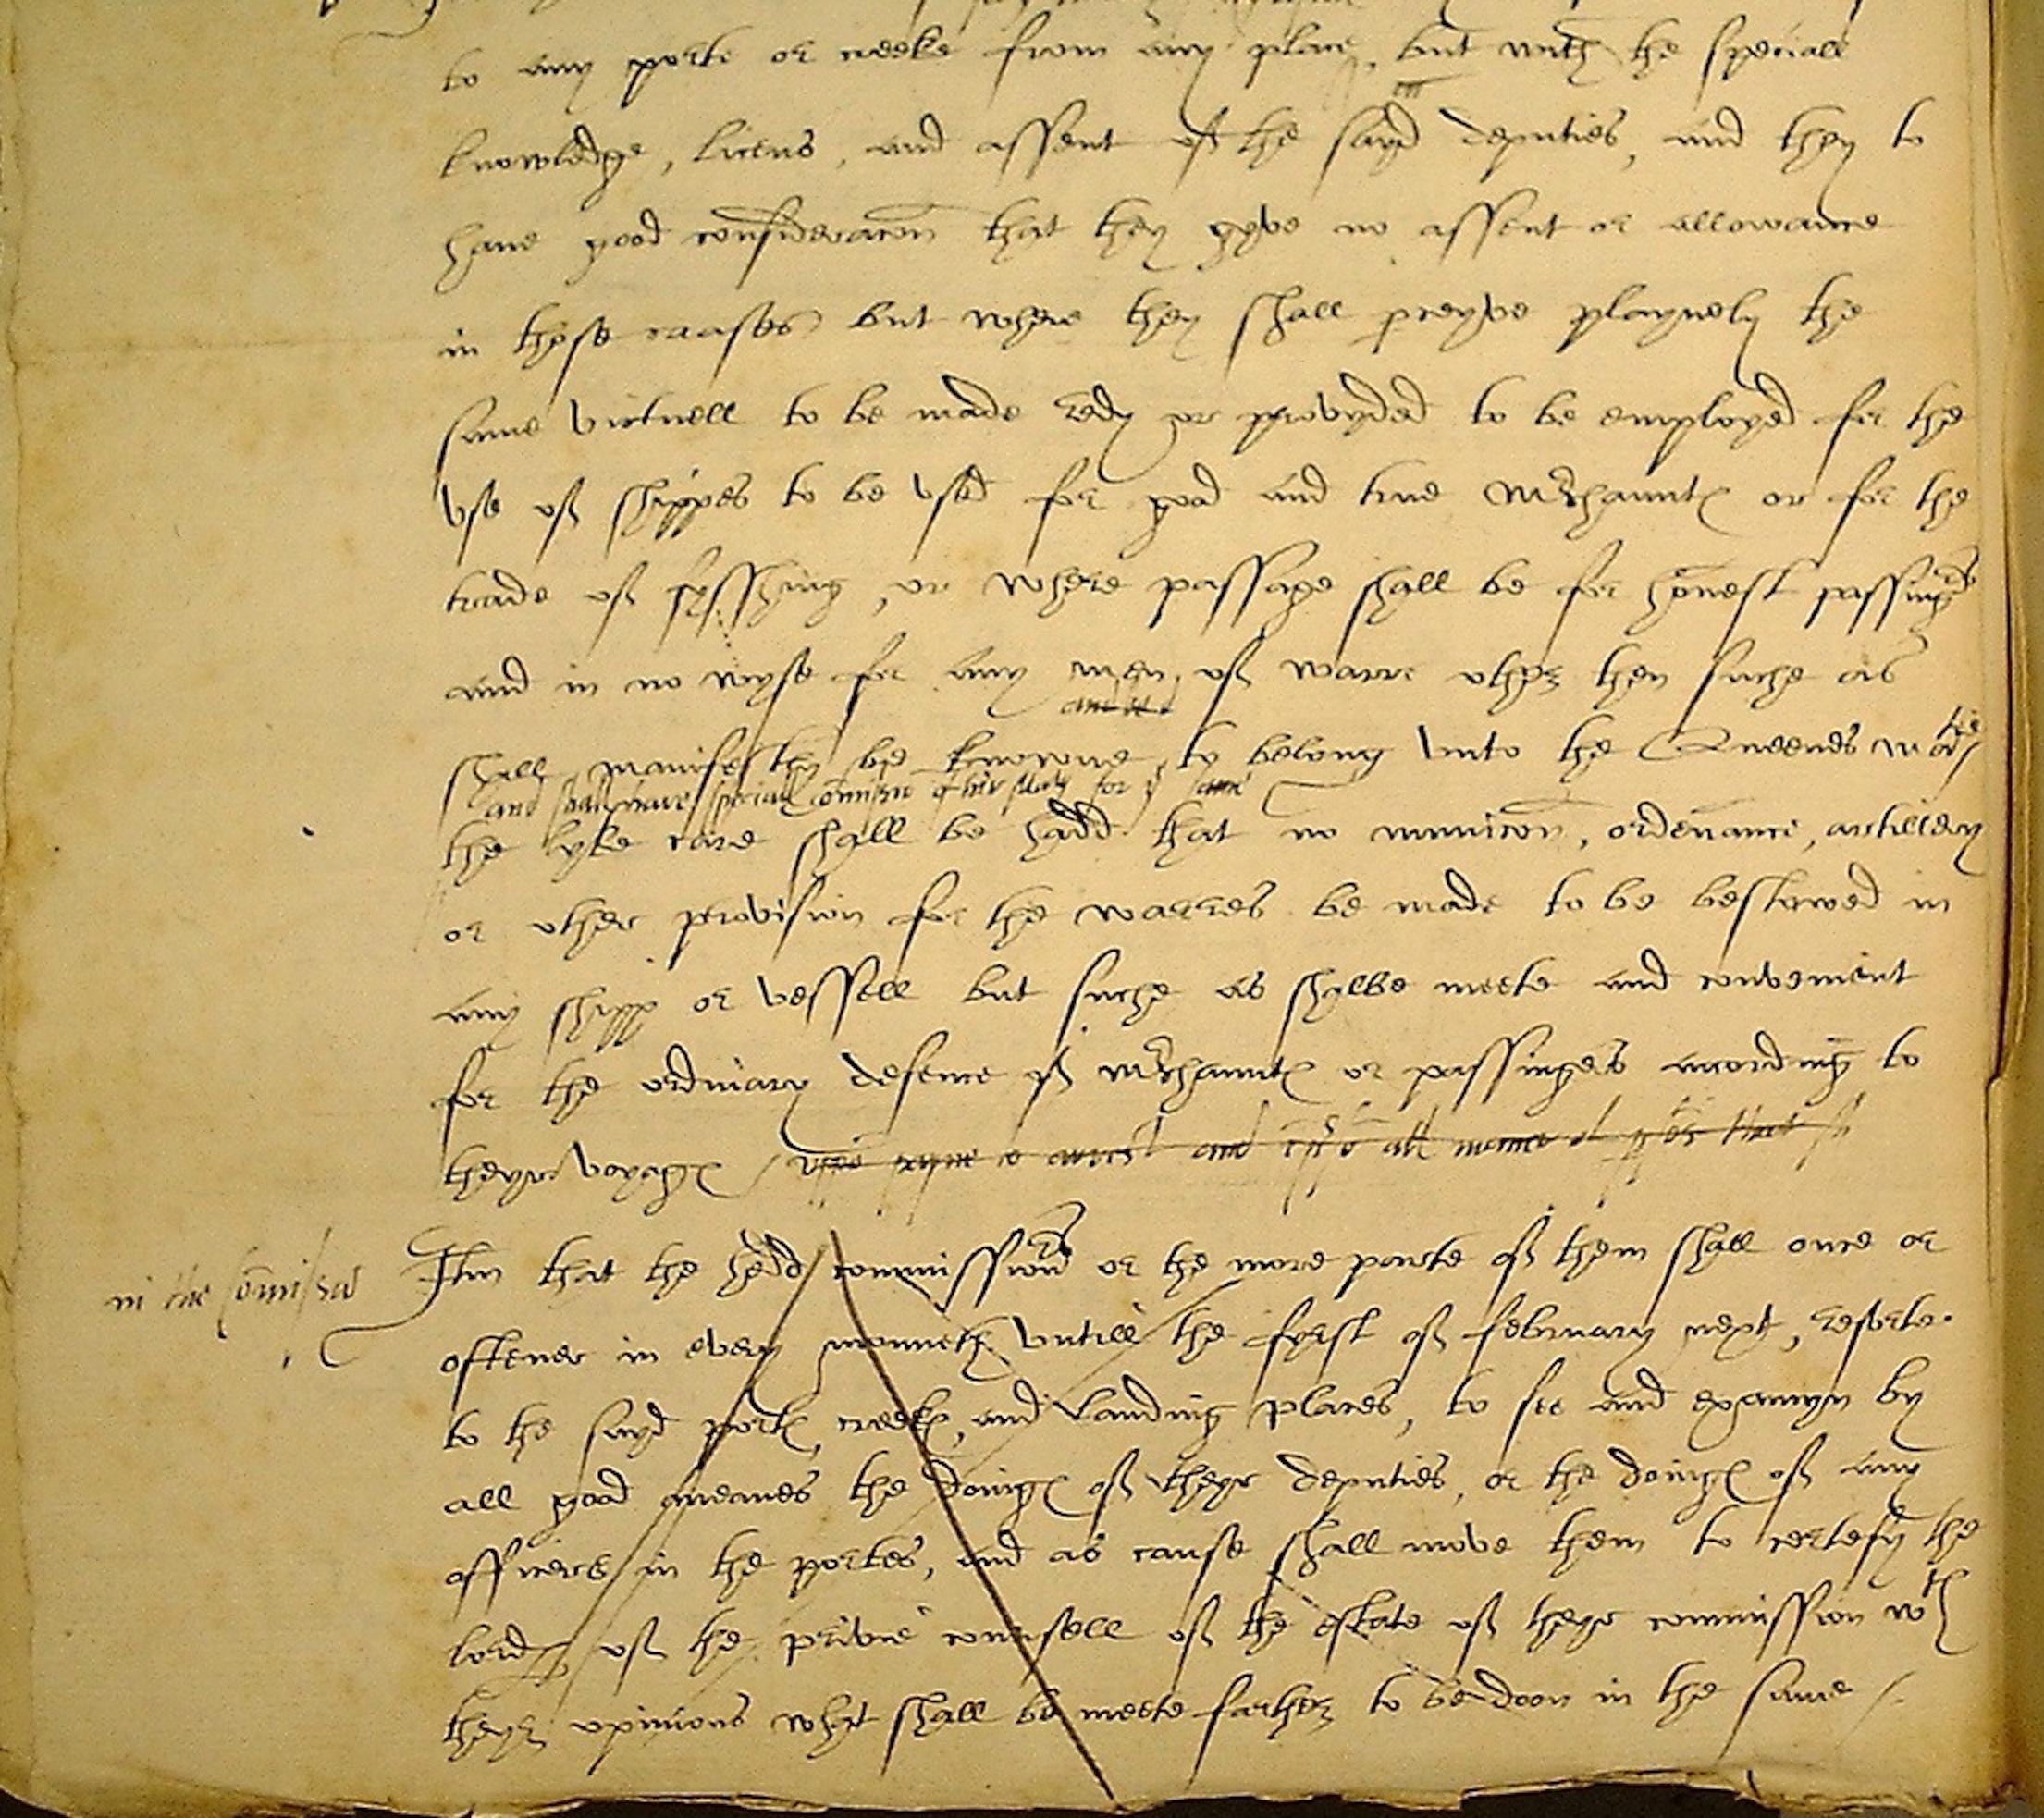 to any porte or creeke from any place, but with the speciall
knowledge, licens, and assent of the sayd deputies, and they to
have good consideracon that they gyve no assent or allowance
in those caases but where they shall pceyve playnely the
same victuell to be made redy or provyded to be employed for the
use of shippes to be used for good and true Mrchaunts or for the
trade of fysshing, or where passage shall be for honest passingrs
and in no wyse for any men of warre other then suche as
shall manifestly be knowne to belong unto the Queenes matie
and shall have speciall comission for ye same
the lyke care shall be hadd that no municon, ordenance, artillery
or other provision for the warres be made to be bestowed in
any shipp or vessell but suche as shalbe meete and convenient
for the ordinary defence of Mrchaunts or passingers according to
theyr voyages / uppon payne to arrest and all maner of that
in the comission
Itm that the hedd commissionrs or the more parte of them shall once or
oftener in every monneth untill the fyrst of february next, resorte
to the sayd ports, creeks, and landing places, to see and examyn by
all good meanes the doings of theyr deputies, or the doings of any
officers in the portes, and as cause shall move them to certefy the
lords of the privie counsell of the estate of theyr commission wth
theyr opinions what shall be meete farther to be doon in the same /.